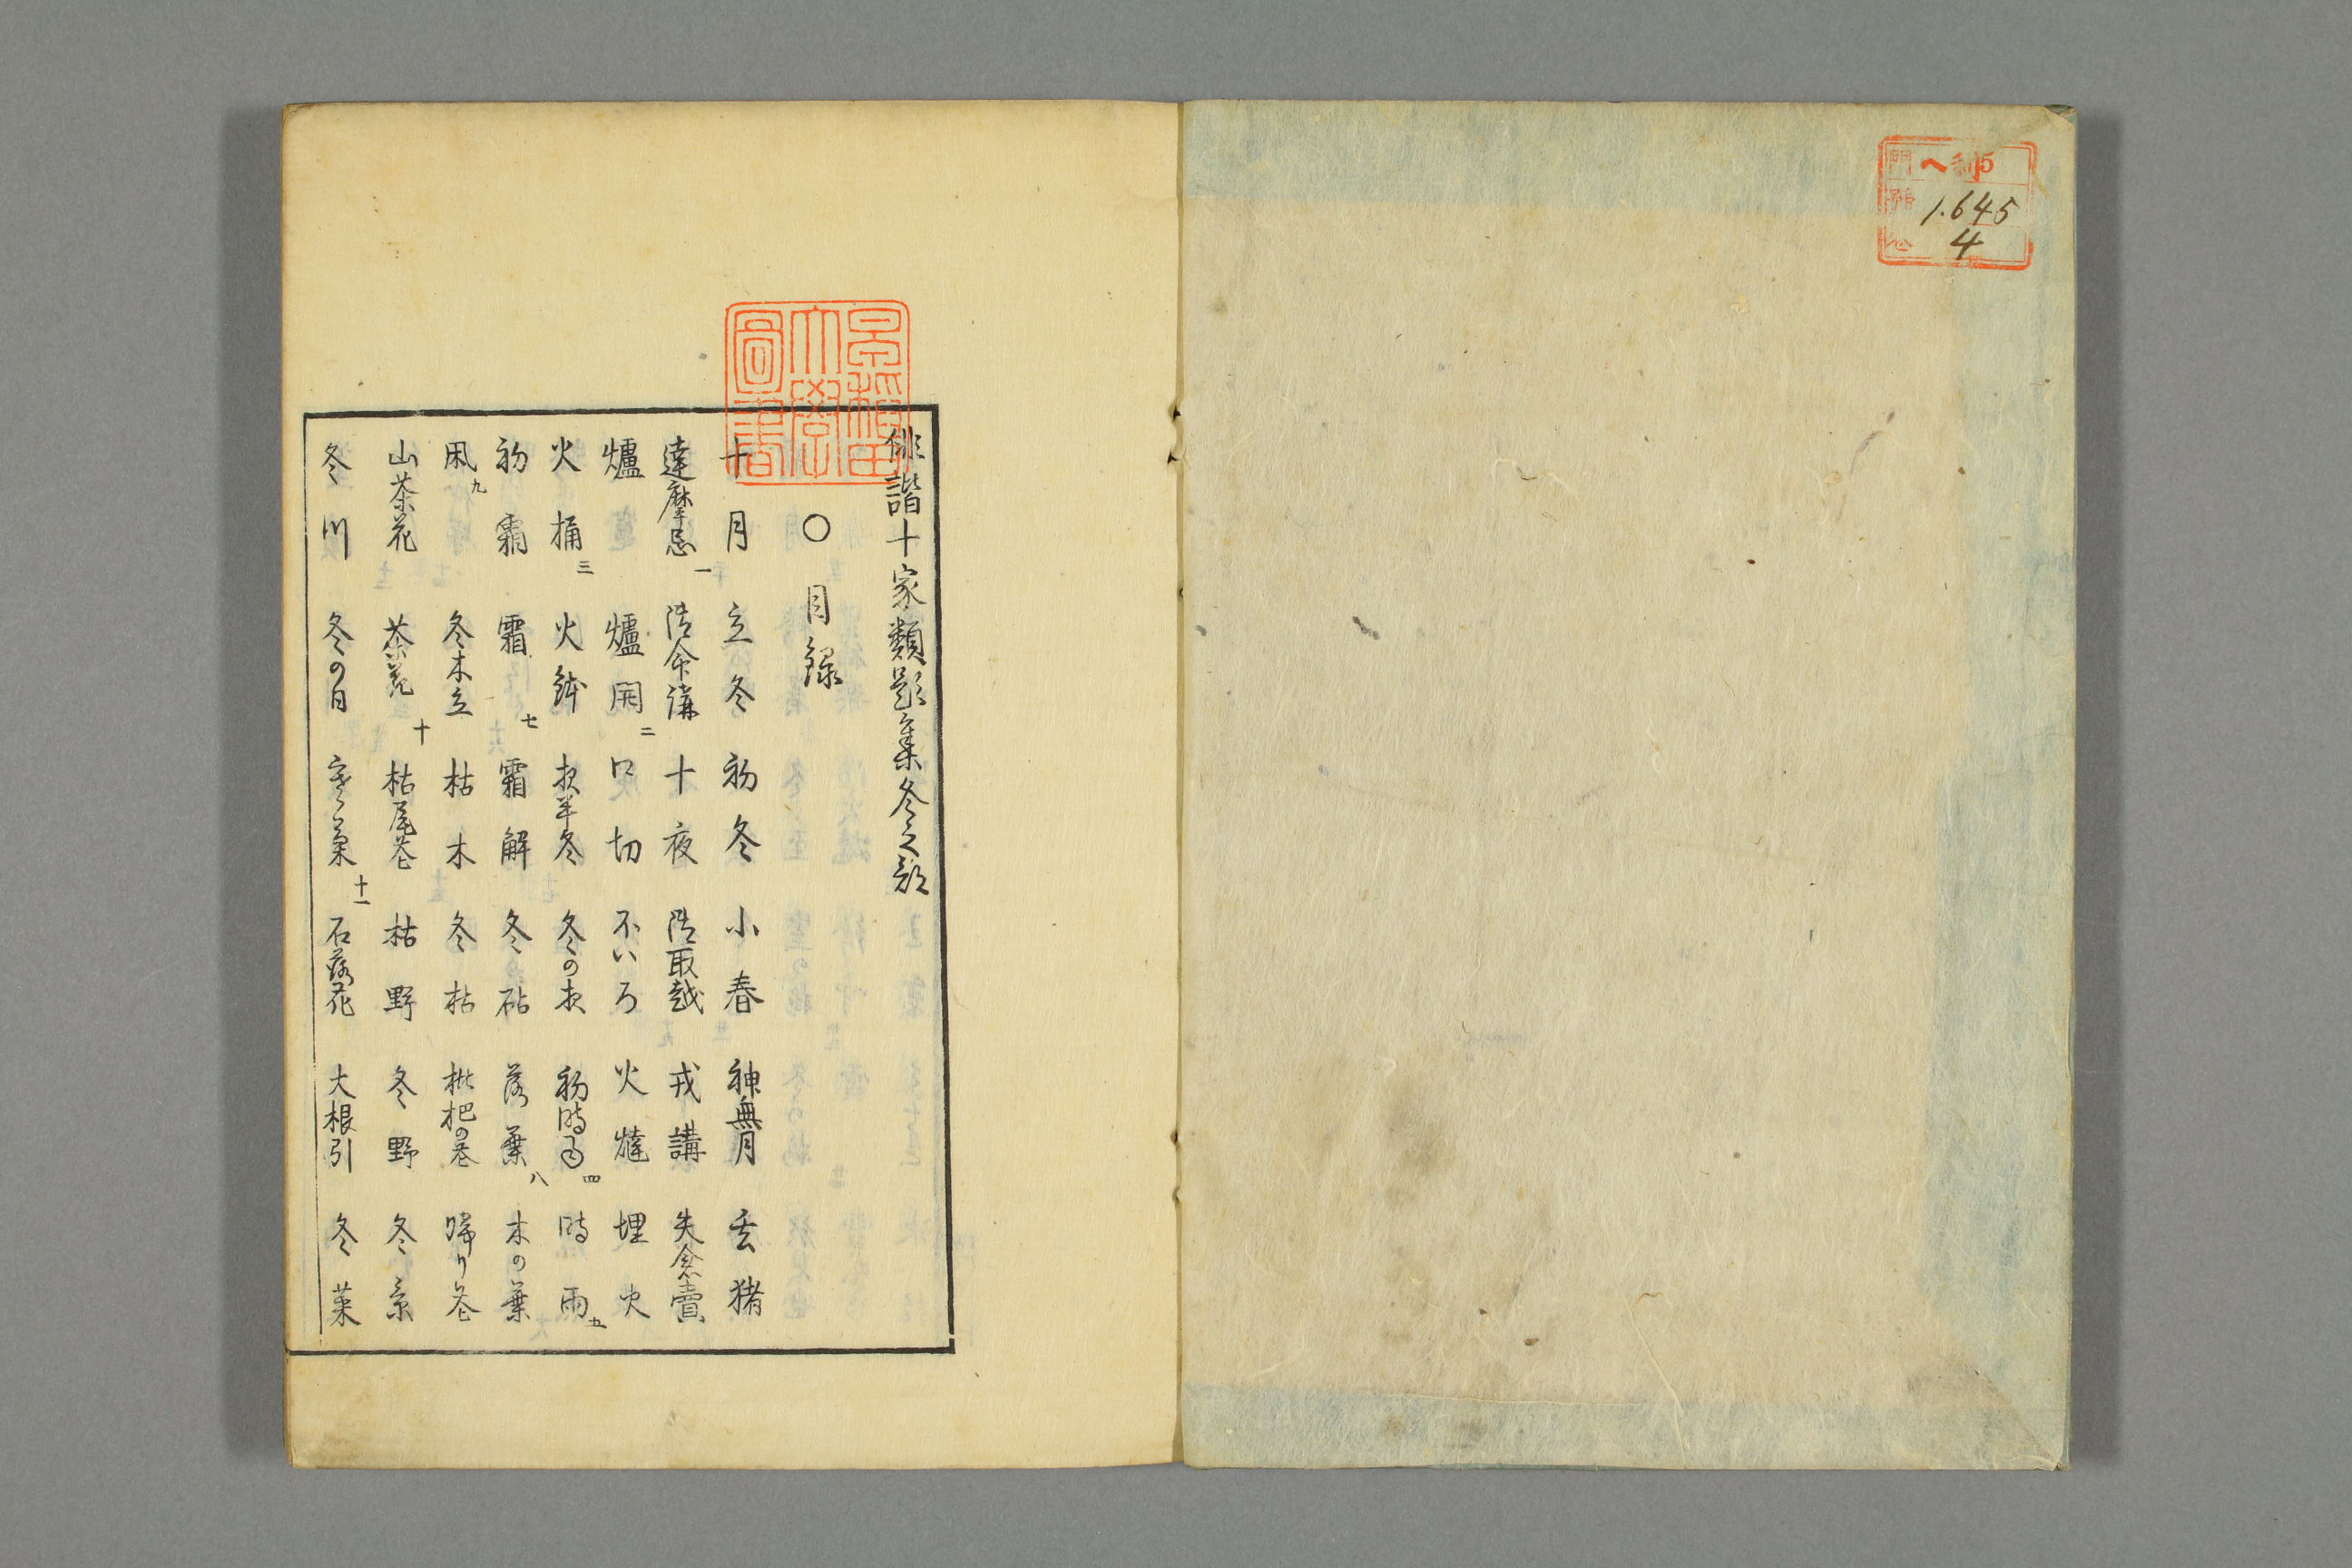 門 ヘ 5
號 1.645
卷 4
早稲田大學圖書
俳諧十家類題集冬之部
○目録
十月 立冬 初冬 小春 神無月 玄猪
達摩忌 一 御命講 十夜 御取越 戎講 失念賣
爐 爐開 二 口切 不いろ 火燵 埋火
火桶 三 火鉢 夜半冬 冬の夜 初時雨 四 時雨 五
初霜 霜 七 霜解 冬砧 落葉 八 木の葉
凩 九 冬木立 枯木 冬枯 枇杷の花 帰り花
山茶花 茶花 十 枯尾花 枯野 冬野 冬景
冬川 冬の日 寒菊 十一 石蕗花 大根引 冬菜